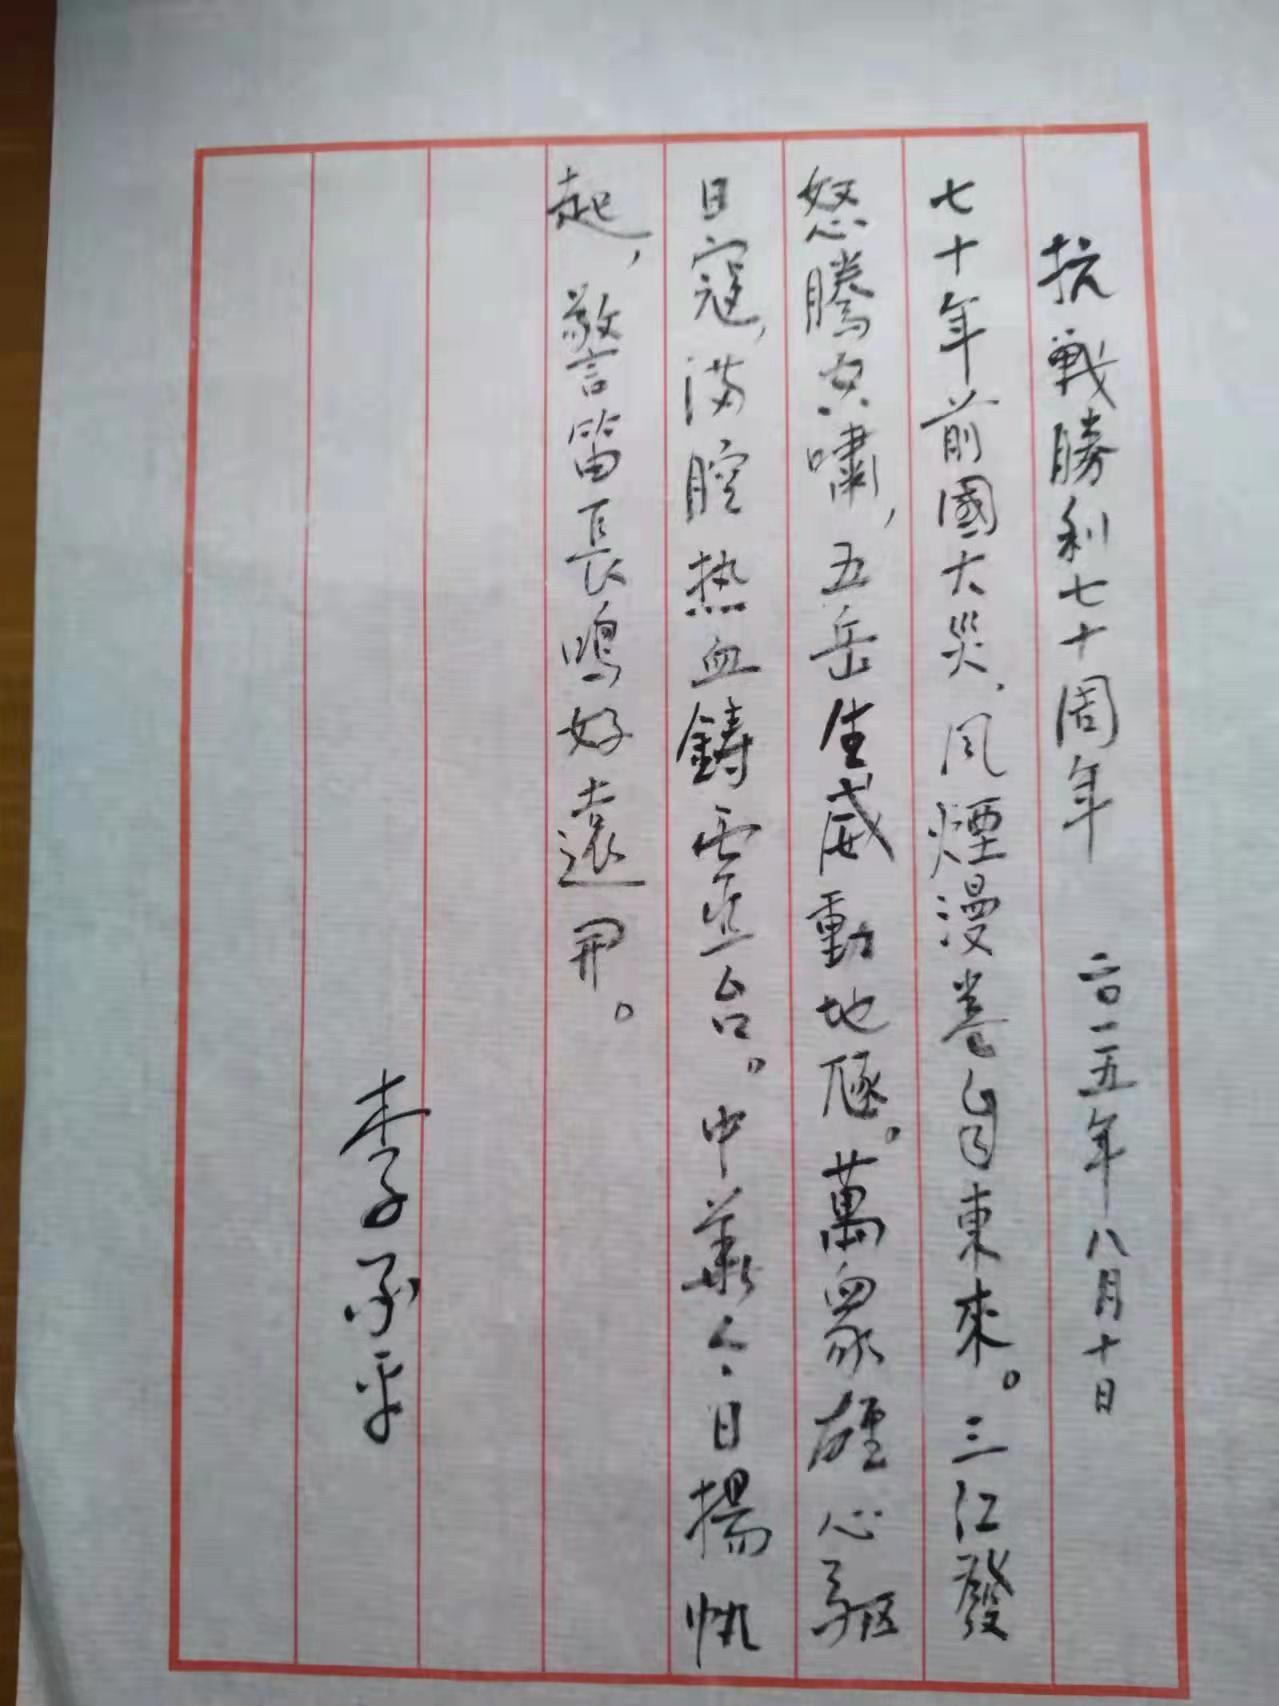 抗戰勝利七十周年 二〇一五年八月十日
七十年前國大災，风煙漫卷自東來。三江發
怒騰空嘯，五岳生威動地磓。萬眾雄心驱
日寇，满腔热血鑄雲台。中華今日揚帆
起，警笛長鳴好遠開。
李子承平